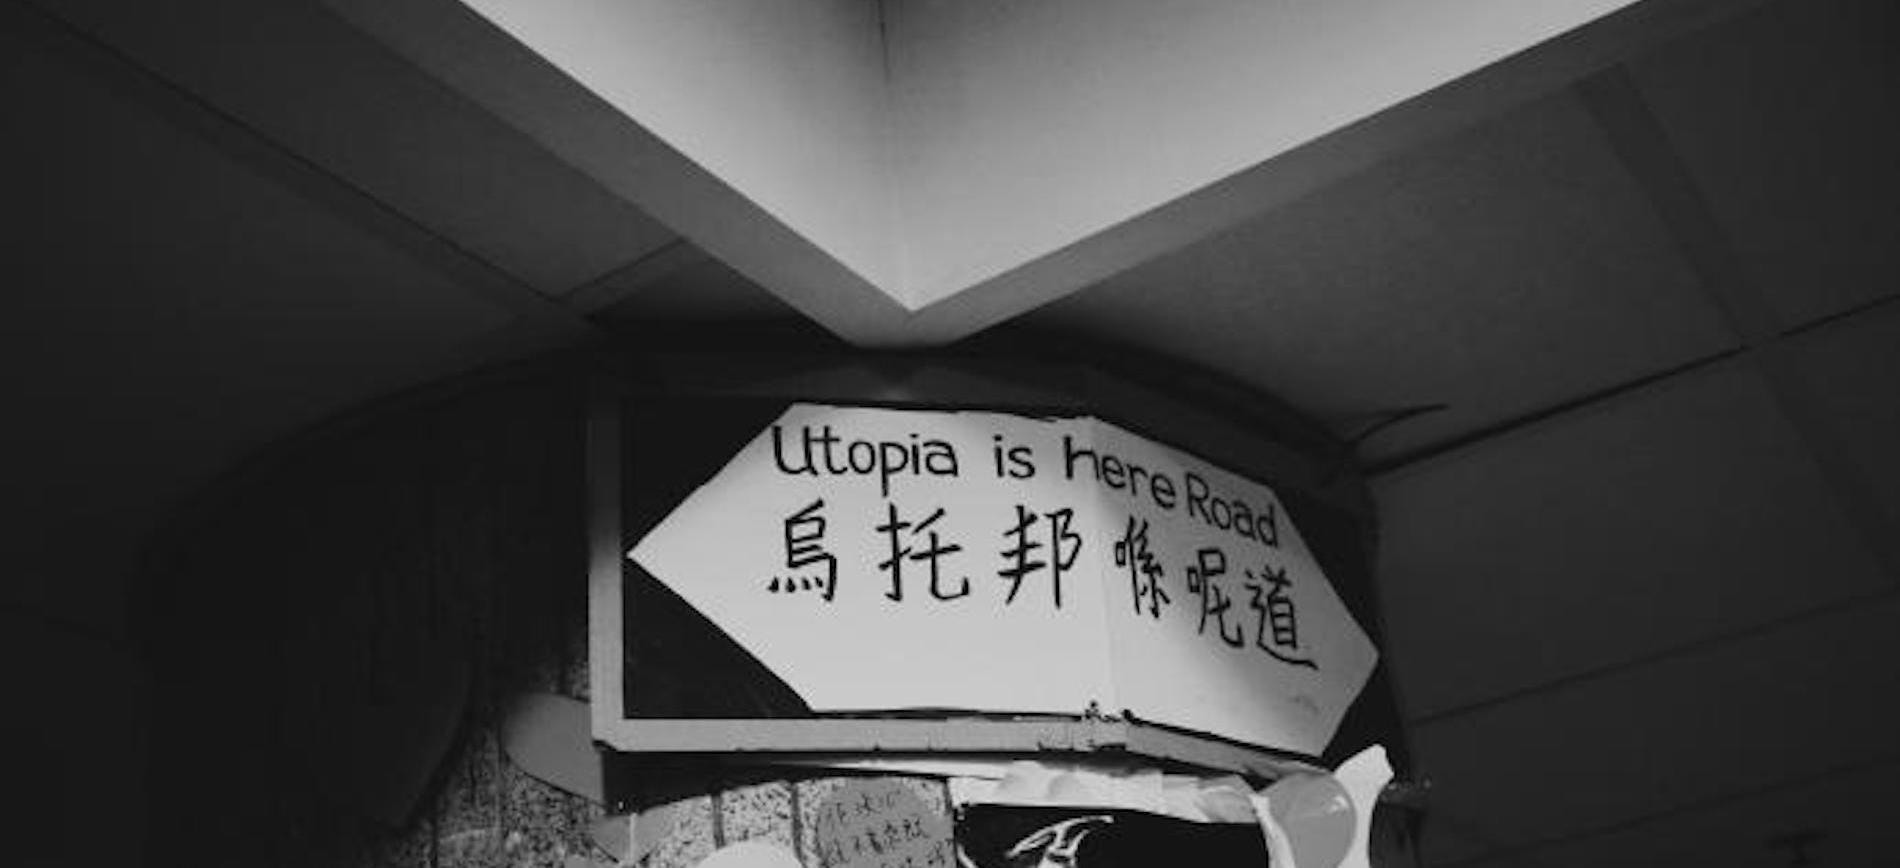 Utopia is here Road
烏托邦喺呢道